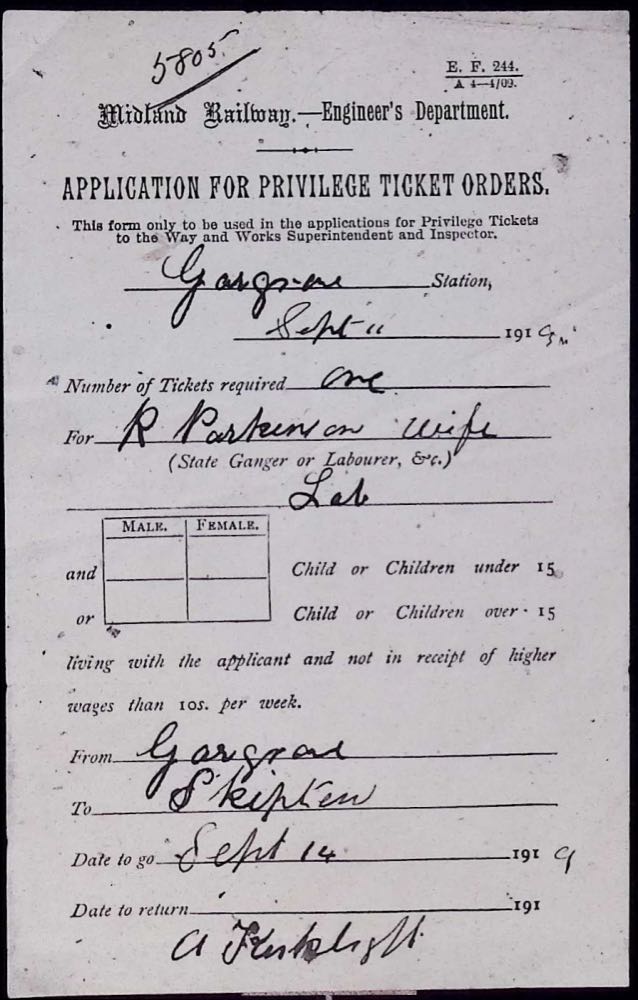 5805
E. F. 244.
A 4—4/09.
Midland Railway.—Engineer's Department.
APPLICATION FOR PRIVILEGE TICKET ORDERS.
This form only to be used in the applications for Privilege Tickets
to the Way and Works Superintendent and Inspector.
Gargrave Station,
Sept 11 1919
Number of Tickets required one
For R Parkinson wife
(State Ganger or Labourer, &c.)
Lab
MALE. FEMALE.
and Child or Children under 15
or Child or Children over 15
living with the applicant and not in receipt of higher
wages than 10s. per week.
From Gargrave
To Skipton
Date to go Sept 14 1919
Date to return 191
A